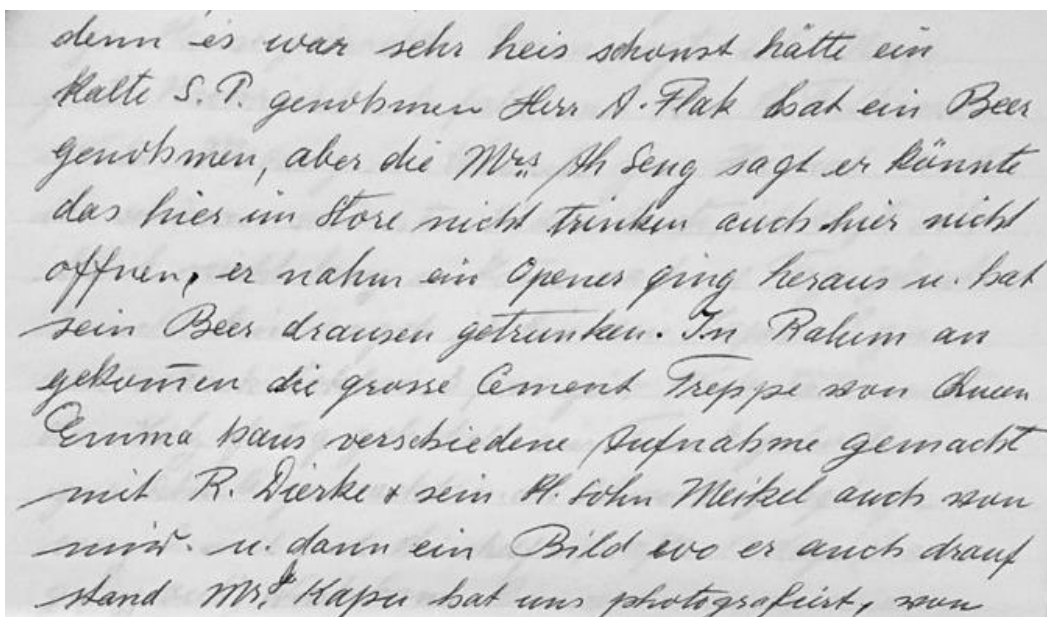 denn es war sehr heis schonst hätte ein
Kalte S. P. genohmen Herr A. Flak hat ein Beer
genohmen, aber die Mrs. Ah Seng sagt er könnte
das hier im Store nicht trinken auch hier nicht
offnen, er nahm ein Opener ging heraus u. hat
sein Beer drausen getrunken. In Ralum an
gekom̄en die grosse Cement Treppe von Queen
Emma haus verschiedene Aufnahme gemacht
mit R. Dierke & sein Kl. Sohn Meikel auch von
mir. u. dann ein Bild wo er auch drauf
stand Mrs. Kapu hat uns photografiert, von